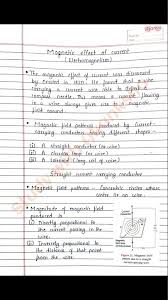 Magnetic effect of current
(Electromagnetism)
The magnetic effect of current was discovered
by Oersted in 1820. He found that a wire
carrying a current was able to deflect a
compass needle. This means a current flowing
in a wire always gives rise to a magnetic
Magnetic field patterns produced by current-
carrying conductors having different shapes
(i) A straight conductor (or wire)
(ii) A circular loop (or wire)
(iii) A solenoid (long coil of wire)
Straight current carrying conductor
Magnetic field patterns - Concentric circles whose
centre lie on wire
Magnitude of magnetic field
produced is
(i) Directly proportional to
the current passing in the
wire.
(ii) Inversely proportional to
the distance of that point
from the wire